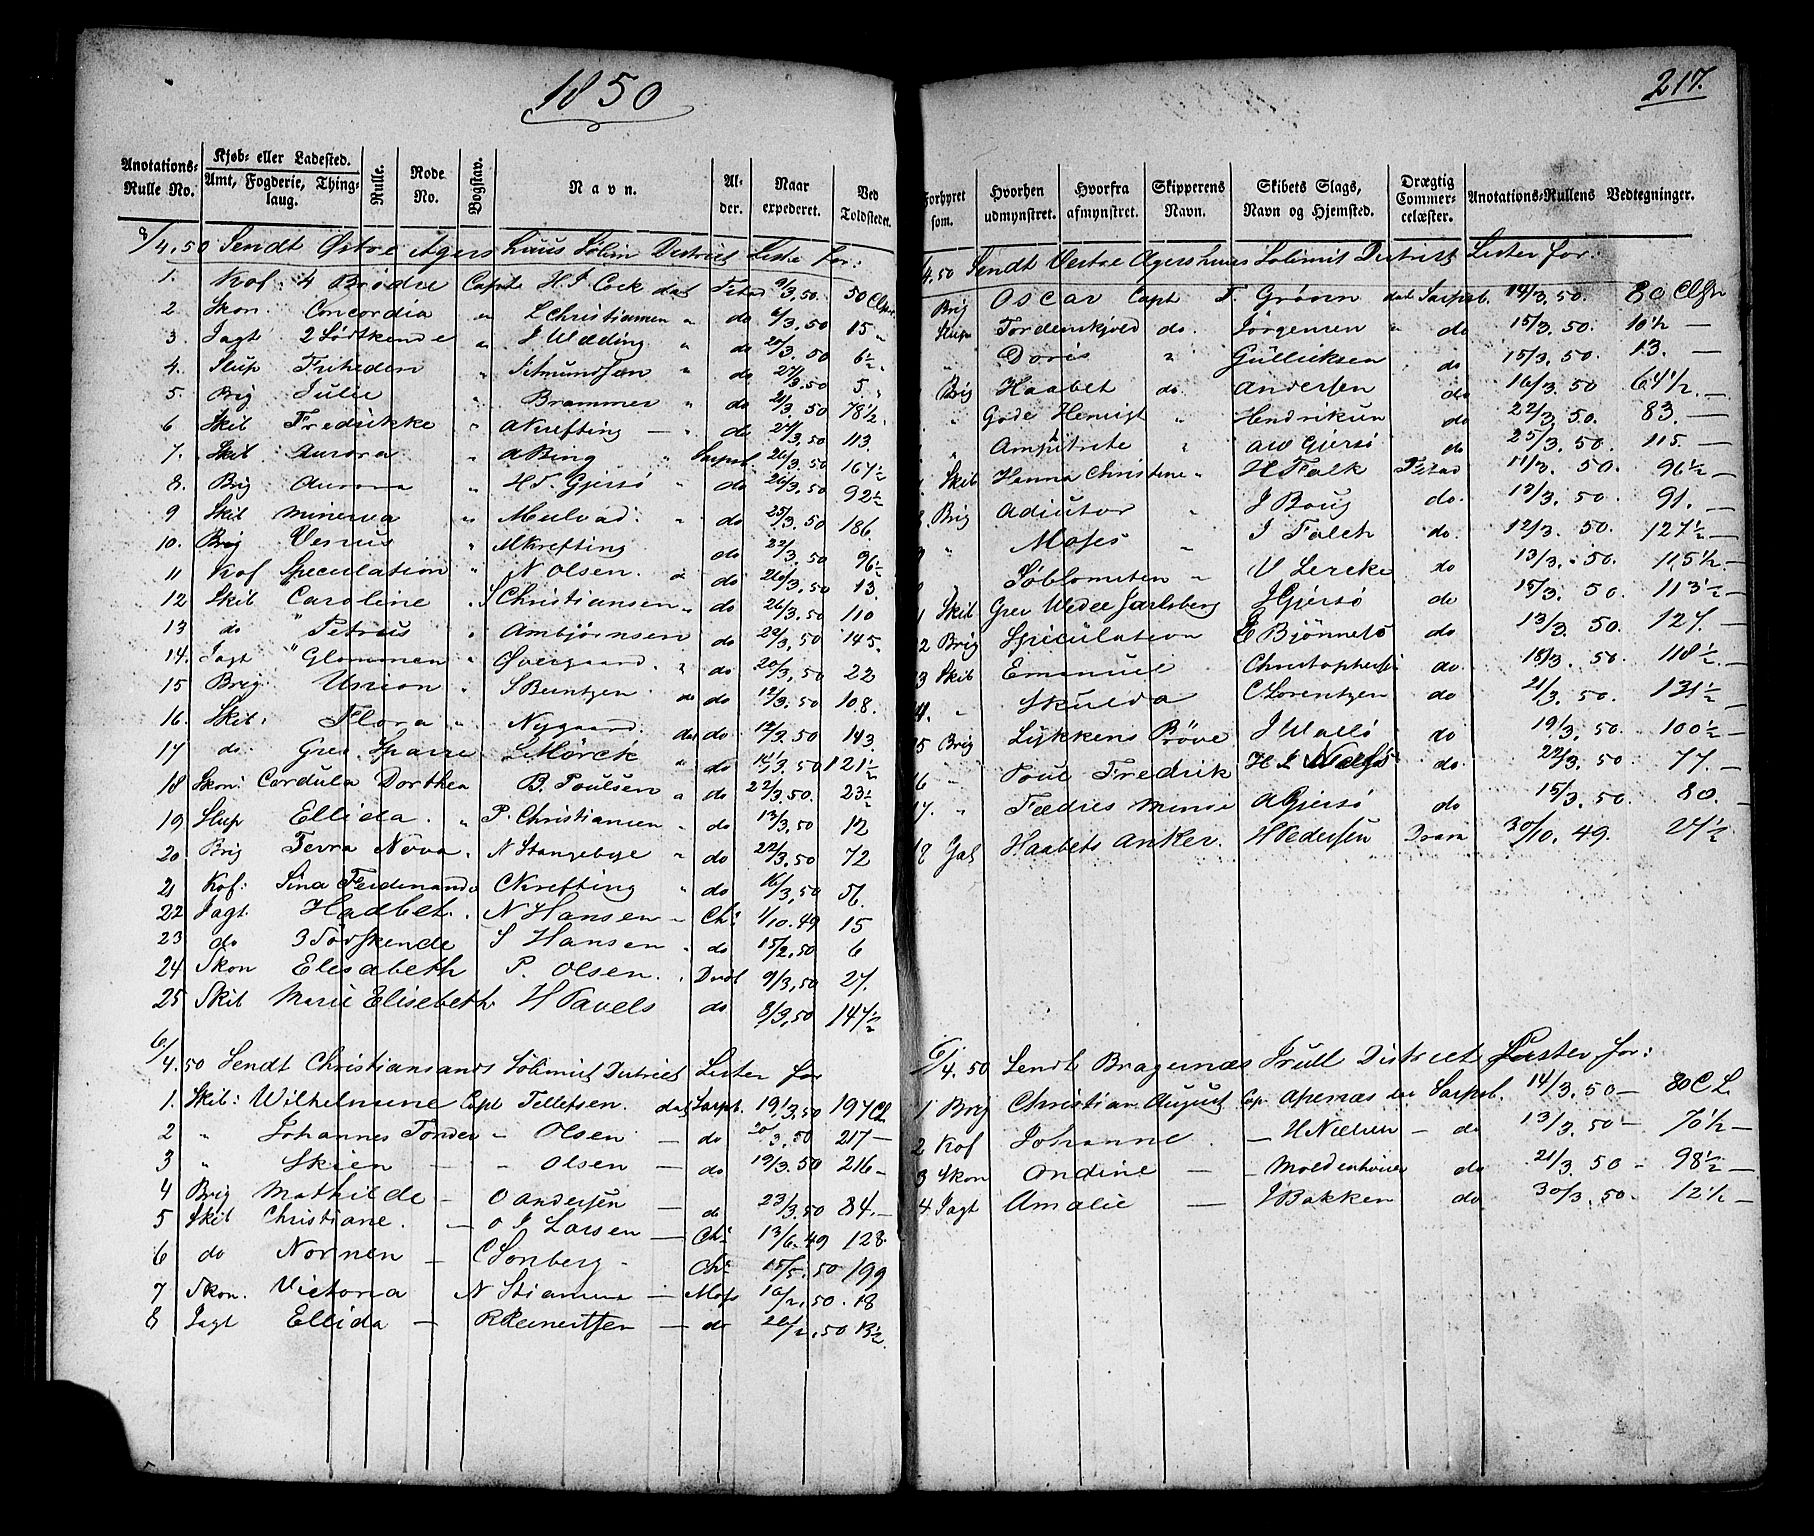 1850
Anotations-Rulle No. Kjøb- eller Ladested. Amt, Fogderie, Thinglaug. Rulle. Rode No. Bogstav. Navn. Alder. Naar expederet. Ved Toldstedet.
8/4.50 Sendt Østre Agershuus District Liste for:
1. Kof: 4 Brödre Capt H. J. Cock dat Fstad 9/3.50. 50 Clstr
2 Skon. Concordia " L Christiansen " do 6/3.50 15 "
3. Jagt 2 Södskende " J Wedding " do 20/3.50 6½ "
4. Slup Friheden " " do 27/3.50 5 "
5. Brig Julie " Brammer " do 21/3.50 78½
6 Skib Fredrikke " A Krefting " do 27/3.50 113.
7. Skib Aurora " A Bing " Sarpsb. 26/3.50 167½
8. Brig Aurora " H. F. Gjersö " do 26/3.50 92½
9 Skib Minerva " Mulvad. " do 25/3.50 186.
10. Brig Venus " M Krefting do 22/3.50 96½
11 Kof Speculation " N Olsen. " do 26/3.50 13.
12 Skib Caroline " S Christiansen " do 26/3.50 110
13 do " Petrus " Ambjørnsen do 20/3.50 145.
14. Jagt " Glommen " Overgaard. " do 20/3.50 22
15 Brig Union " S Bentzen. do do 12/3.50 108.
16. Skib: Flora " Nygaard. dat do 12/3.50 143.
17 do. Grev Sparre L Mörch " do 14/3.50 121½
18 Skon: Cordula Dorthea B. Poulsen " do 22/3.50. 23½
19 Slup Ellida. " P. Christiansen " do 13/3.50 12
20 Brig Terra Nova. " N Stangebye " do 22/3.50 72
21 Kof: Sina Ferdinande C Krefting " do 16/3.50 56.
22 Jagt. Haabet. " N Hansen " Cha 1/10.49 15
23 do 3 Södskende S Hansen " do 15/2.50 6
24 Skon Elisabeth P. Olsen. " Dröb 9/3.50 27.
25 Skib Marie Elisebeth H Pavels do 8/3.50 147½
6/4.50 Sendt Christiansands Distrikt Lister for
1. Skib: Wilhelmine Capt Tellefsen. dat Sarpsb. 19/3.50 197 Cl.
2 " Johannes Tönder " Olsen — do 20/3.50 217 —
3 " Skien — " Olsen — do 19/3.50 216 —
4 Brig Mathilde — O Andersen — do 23/3.50 84. —
5 Skib Christiane. — O J Larsen — Cha 13/6.49 128.
6 do Nornen — C Sonberg — Cha 15/5.50 199
7 Skon. Victoria N — Moss 16/2.50. 18
8 Jagt Ellida — R Reinertsen — do 26/2.50 13½
217.
Forhyret som. Hvorhen udmynstret. Hvorfra afmynstret. Skipperens Navn. Skibets Slags, Navn og Hjemsted. Drægtig Commercelæster. Anotations-Rullens Vedtegninger.
/4.50 Sendt Vestre Agershuus Distrikt Lister for:
Brig Oscar Capt F. Gröen dat Sarpsb. 14/3.50. 80 Clstr
Slup Tordenskjold do. Jörgensen " do 15/3.50. 10½ —
" Doris " Gulliksen do 15/3.50. 13. —
Brig Haabet do. Andersen do 16/3.50 64½ —
" Gode Hensigt " Hendriksen do 22/3.50. 83. —
" Ampitrite " AW Gjersö do 25/3.50. 115. —
Skib Hanna Christine " H Falk Fstad 11/3.50. 96½ —
8. Brig Adiutor " J Boug do. 13/3.50. 91. —
9 " Moses " J Falch do. 12/3.50. 127½ —
Söblomsten " V Lercke do 13/3.50. 115½ —
1 Skib Grev Wedel Jarlsberg J Gjersö do 15/3.50. 113½ —
2 Brig Speculation do 13/3.50. 127. —
3 Skib Emanuel do 18/3.50. 118½. —
4. " Skulda C Lorentzen do 21/3.50. 131½ —
5 Brig Lykkens Pröve do 19/3.50. 100½ —
6 " Poul Fredrik do. 22/3.50. 77. —
17. " Fædres Minde A Gjersö do 15/3.50. 80. —
18 Gal Haabets Anker. H Pedersen Dram 30/10.49. 27½
6/4.50 Sendt Bragernæs District Lister for:
1 Brig Christian August Cap. Apenæs dat Sarpsb. 14/3.50 — 80 C L.
2 Kof Johanne — H Nielsen — do 13/3.50 — 70½ —
3 Skon Ondine — Moldenhauer do 21/3.50 — 98½ —
4 Jagt Amalie — J Bakken do 30/3.50. 12½ —